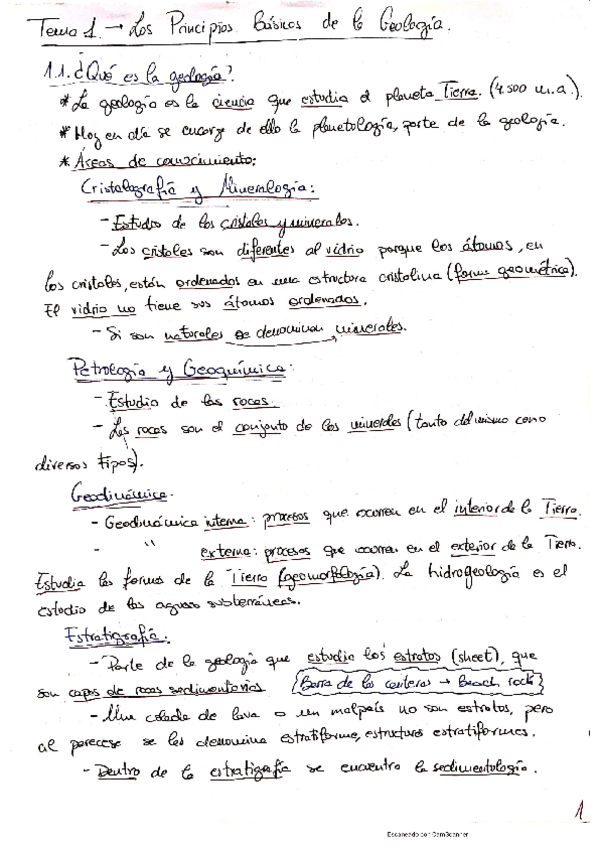 Tema 1. → Los Principios Básicos de la Geología.
1.1. ¿Qué es la geología?.
* La geología es la ciencia que estudia el planeta Tierra. (4.500 m.a.).
* Hoy en día se encarga de ello la planetología, parte de la geología.
* Áreas de conocimiento:
Cristalografía y Mineralogía:
- Estudio de los cristales y minerales.
- Los cristales son diferentes al vidrio porque los átomos, en
los cristales, están ordenados en una estructura cristalina (forma geométrica).
El vidrio no tiene sus átomos ordenados.
- Si son naturales se denominan minerales.
Petrología y Geoquímica:
- Estudio de las rocas.
- Las rocas son el conjunto de los minerales (tanto del mismo como
diversos tipos).
Geodinámica.
- Geodinámica interna: procesos que ocurren en el interior de la Tierra.
- " externa: procesos que ocurren en el exterior de la Tierra.
Estudia las formas de la Tierra (geomorfología). La hidrogeología es el
estudio de las aguas subterráneas.
Estratigrafía.
- Parte de la geología que estudia los estratos (sheet), que
son capas de rocas sedimentarias (Barra de las canteras → beach rock)
- Una colada de lava o un malpaís no son estratos, pero
al parecerse se les denomina estratiforme, estructuras estratiformes.
- Dentro de la estratigrafía se encuentra la sedimentología.
1
Escaneado con CamScanner